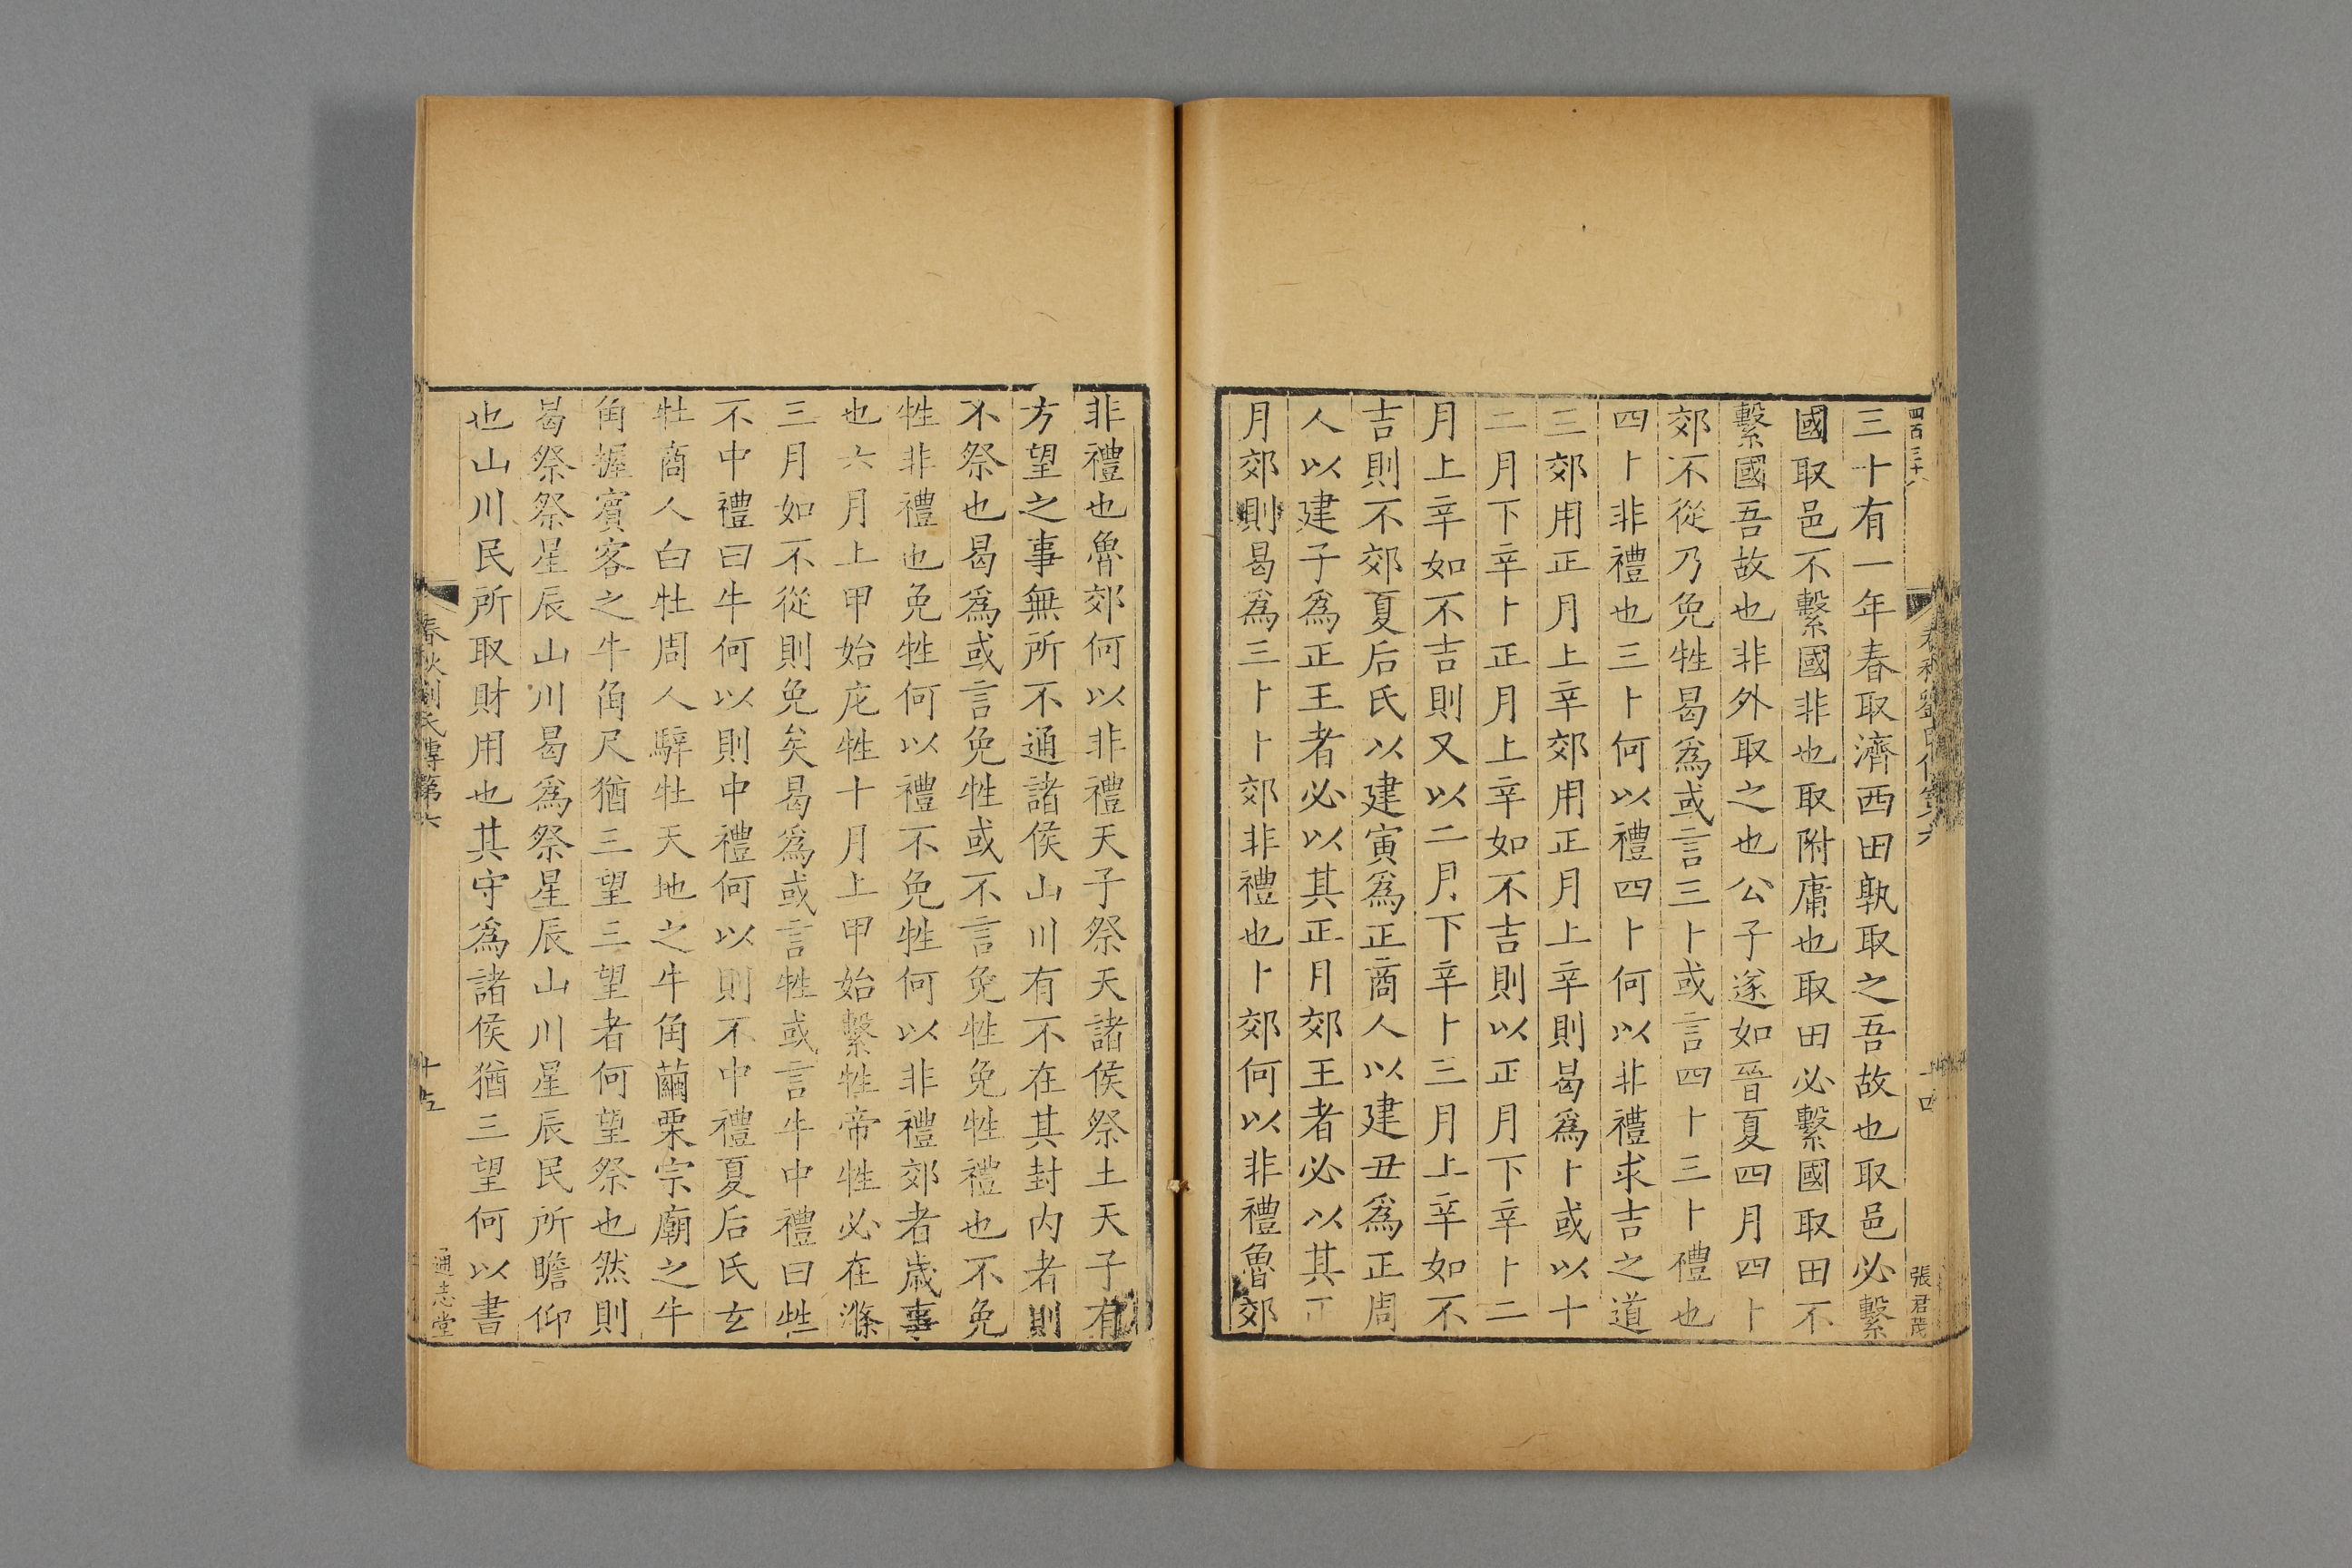 四百三十八
春秋劉氏傳第六
十四
張君茂
三十有一年春取濟西田孰取之吾故也取邑必繫
國取邑不繫國非也取附庸也取田必繫國取田不
繫國吾故也非外取之也公子遂如晉夏四月四卜
郊不從乃免牲曷爲或言三卜或言四卜三卜禮也
四卜非禮也三卜何以禮四卜何以非禮求吉之道
三郊用正月上辛郊用正月上辛則曷爲卜或以十
二月下辛卜正月上辛如不吉則以正月下辛卜二
月上辛如不吉則又以二月下辛卜三月上辛如不
吉則不郊夏后氏以建寅爲正商人以建丑爲正周
人以建子爲正王者必以其正月郊王者必以其正
月郊則曷爲三卜卜郊非禮也卜郊何以非禮魯郊
非禮也魯郊何以非禮天子祭天諸侯祭土天子有
方望之事無所不通諸侯山川有不在其封内者則
不祭也曷爲或言免牲或不言免牲免牲禮也不免
牲非禮也免牲何以禮不免牲何以非禮郊者歲事
也六月上甲始庀牲十月上甲始繫牲帝牲必在滌
三月如不從則免矣曷爲或言牲或言牛中禮曰牲
不中禮曰牛何以則中禮何以則不中禮夏后氏玄
牡商人白牡周人騂牡天地之牛角繭栗宗廟之牛
角握賓客之牛角尺猶三望三望者何望祭也然則
曷祭祭星辰山川曷爲祭星辰山川星辰民所瞻仰
也山川民所取財用也其守爲諸侯猶三望何以書
春秋劉氏傳第六
十五
通志堂